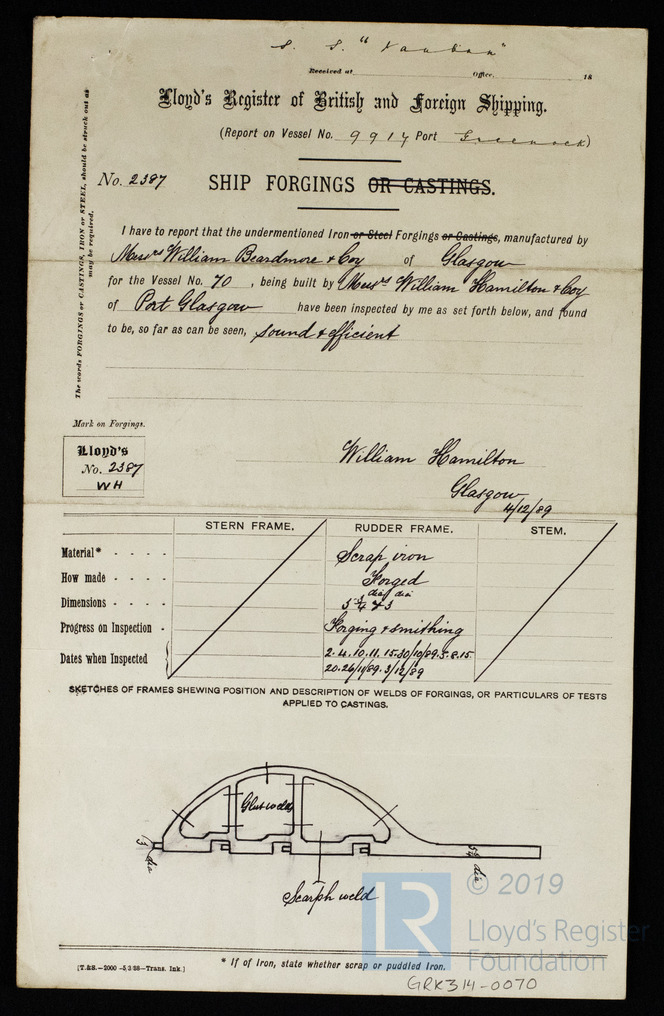 S. S. "
Received at Office. 18
Lloyd's Register of British and Foreign Shipping.
(Report on Vessel No. 9914 Port Greenock)
The words FORGINGS or CASTINGS, IRON or STEEL, should be struck out as
may be required.
No. 2387 SHIP FORGINGS OR CASTINGS.
I have to report that the undermentioned Iron or Steel Forgings or Castings, manufactured by
Messrs William Beardmore & Coy of Glasgow
for the Vessel No. 70, being built by Messrs William Hamilton & Coy
of Port Glasgow have been inspected by me as set forth below, and found
to be, so far as can be seen, sound & efficient
Mark on Forgings.
Lloyd's
No. 2387
WH
William Hamilton
Glasgow
4/12/89
STERN FRAME. RUDDER FRAME. STEM.
Material* - - - - Scrap iron
How made - - - - Forged
dia dia
Dimensions - - - - 5 1/4 & 3
Progress on Inspection - Forging & smithing
Dates when Inspected { 2.4.10.11.15.30/10/89.5.8.15
20.26/11/89.3/12/89
SKETCHES OF FRAMES SHEWING POSITION AND DESCRIPTION OF WELDS OF FORGINGS, OR PARTICULARS OF TESTS
APPLIED TO CASTINGS.
Glut welds
3 dia
5 1/4 dia
Scarph weld
© 2019
LR
Lloyd's Register
Foundation
* If of Iron, state whether scrap or puddled Iron.
[T.&S.—2000—5/3/88—Trans. Ink.]
GRK314-0070